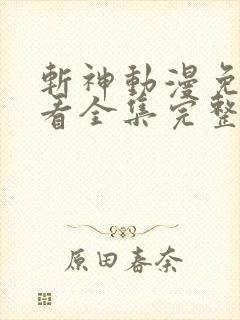 斬神動漫免
看全集完整
原田春奈